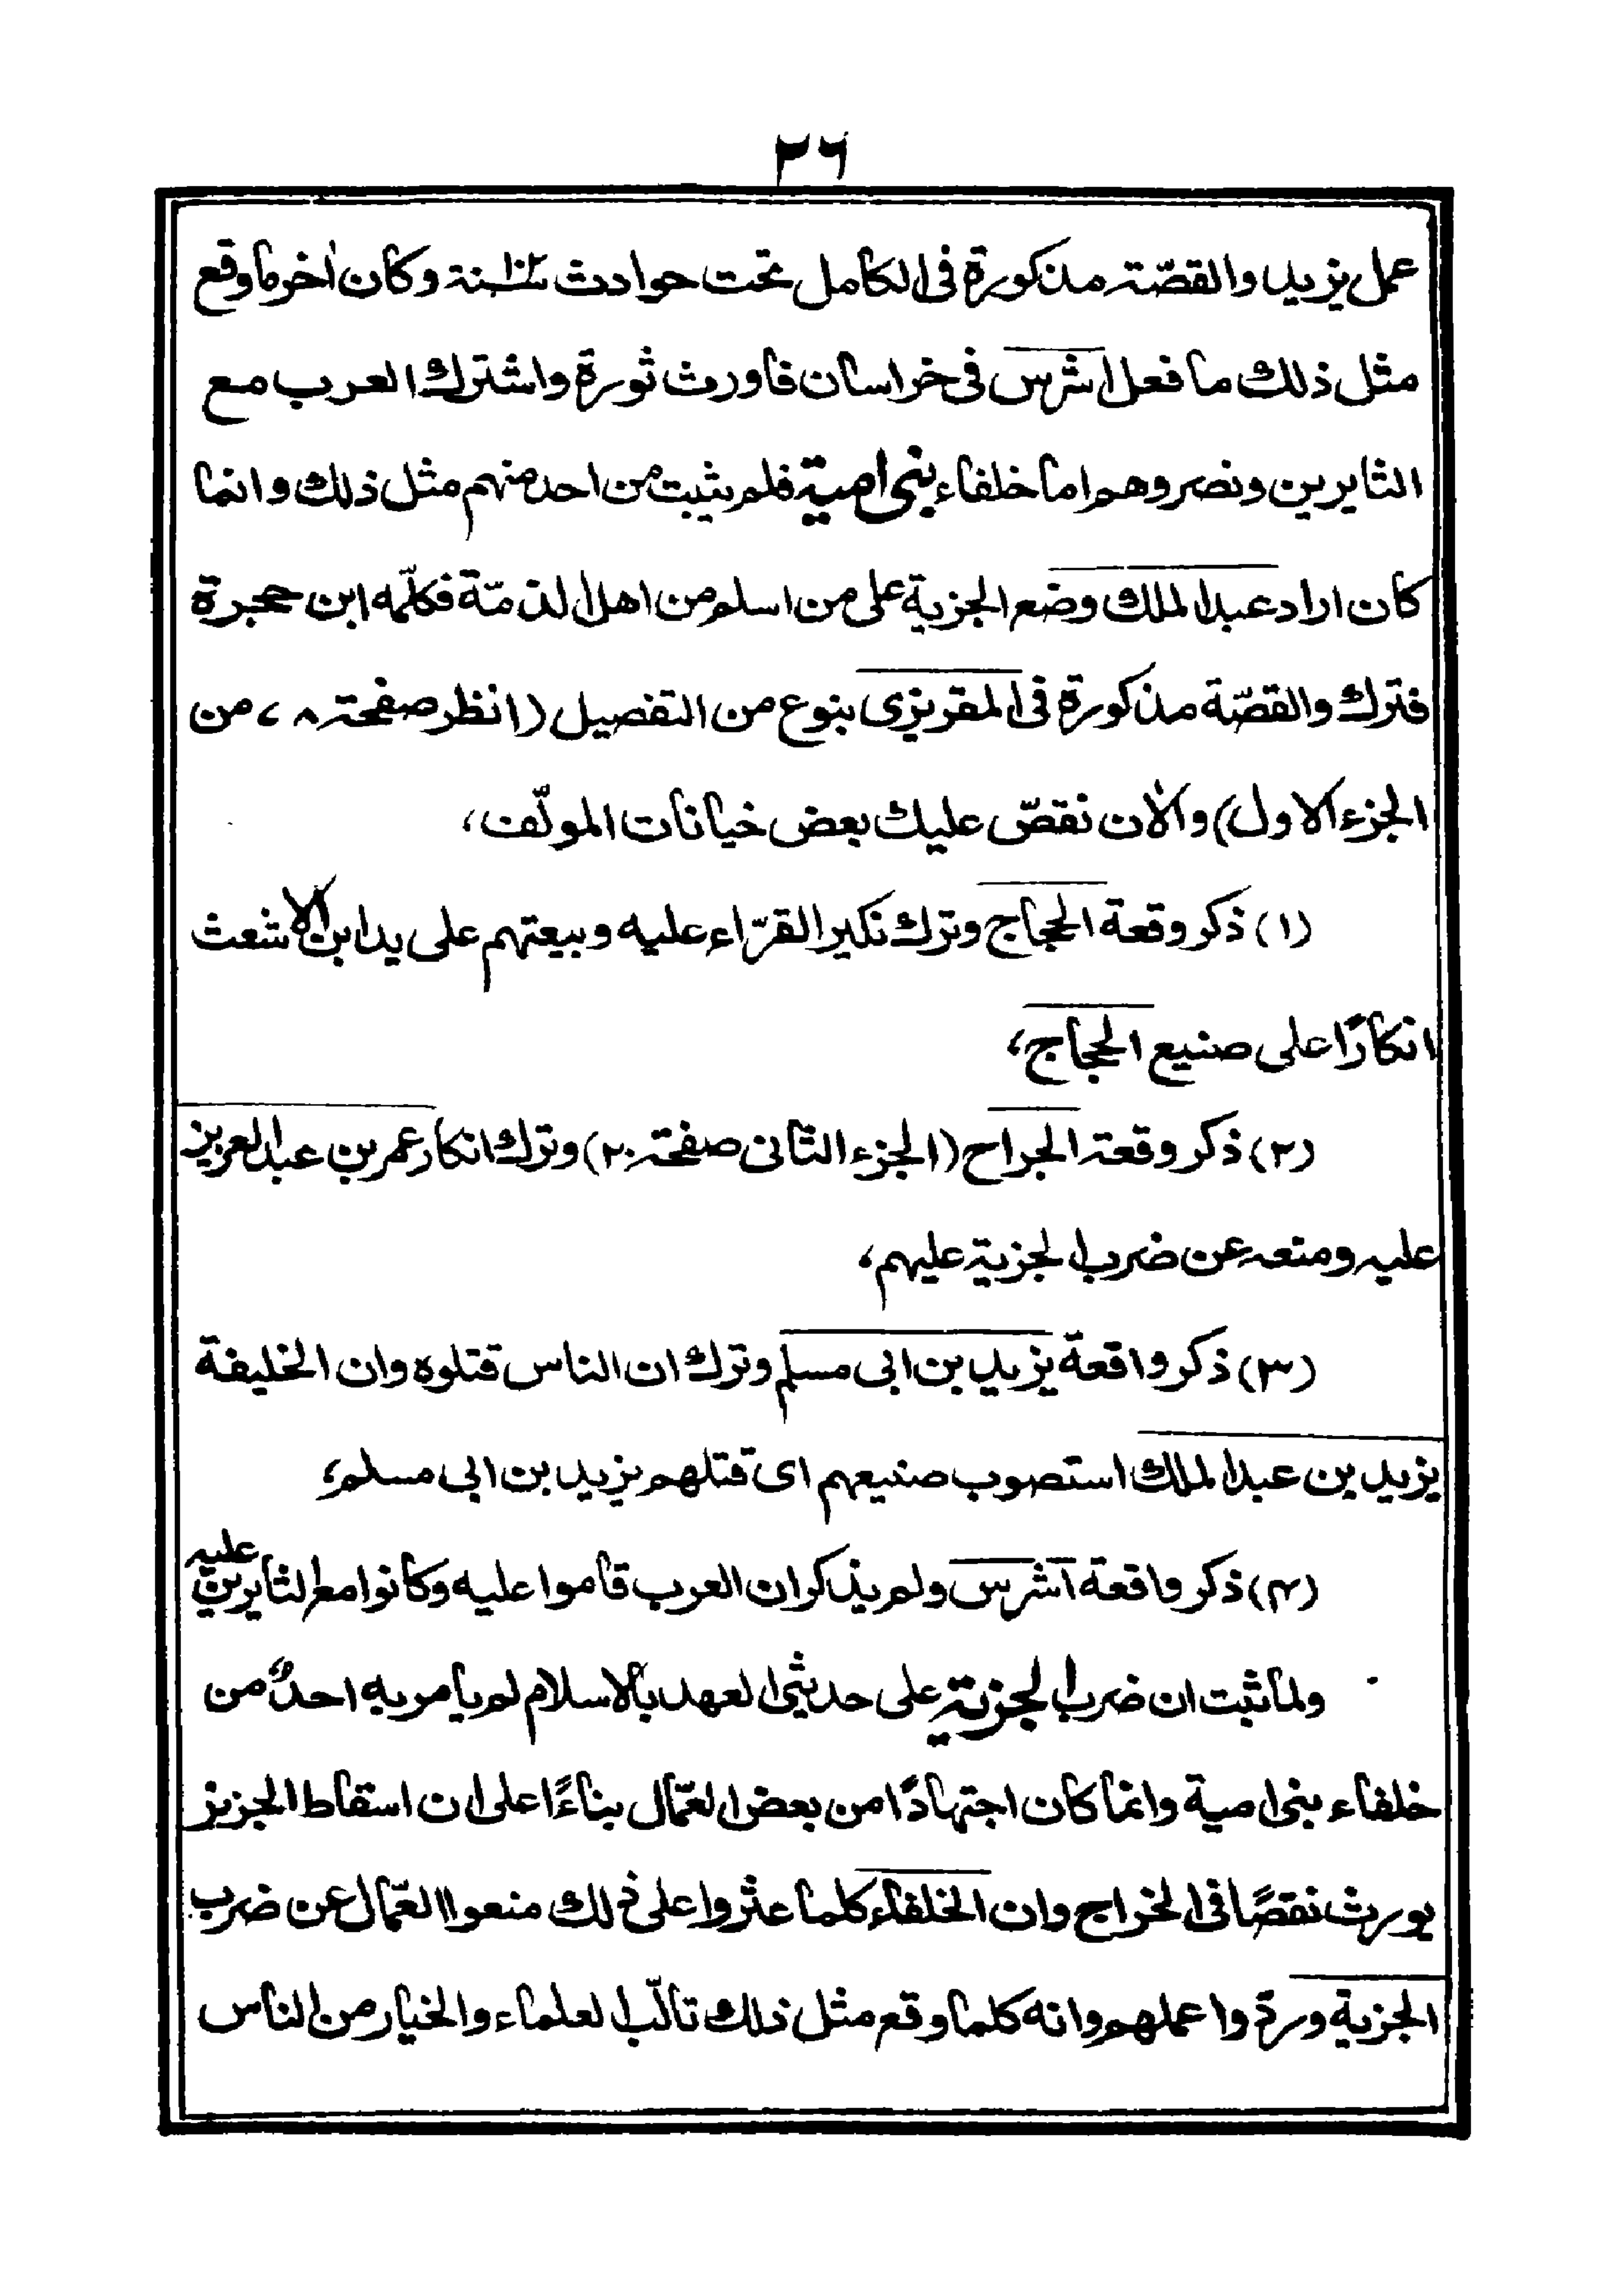 ٣٦
عمل يزيد والقصّة مذكورة فى الكامل تحت حوادث سنة وكان اٰخر ما وقع
مثل ذلك ما فعل اشرس فى خراسان فاورث ثورة واشترك العرب مع
الثايرين ونصروهم اما خلفاء بنى امية فلم يثبت من احد منهم مثل ذلك وانما
كان اراد عبد الملك وضع الجزية على من اسلم من اهل الذمّة فكلّمه ابن حجيرة
فترك والقصّة مذكورة فى المقريزى بنوع من التفصيل (انظر صفحة ٧٨ من
الجزء الاول) والاٰن نقصّ عليك بعض خيانات المولّف،
(١) ذكر وقعة الحجاج وترك نكير القرّاء عليه وبيعتهم على يد ابن الاشعث
انكارًا على صنيع الحجاج،
(٢) ذكر وقعة الجراح (الجزء الثانى صفحة ٢٠) وترك انكار عمر بن عبد العزيز
عليه ومنعه عن ضرب الجزية عليهم،
(٣) ذكر واقعة يزيد بن ابى مسلم وترك ان الناس قتلوه وان الخليفة
يزيد بن عبد الملك استصوب صنيعهم اى قتلهم يزيد بن ابى مسلم،
(٤) ذكر واقعة اشرس ولم يذكر ان العرب قاموا عليه وكانوا مع الثايرين عليه
ولما ثبت ان ضرب الجزية على حديثى العهد بالاسلام لم يأمر به احدٌ من
خلفاء بنى امية وانما كان اجتهادًا من بعض العمّال بناءً على ان اسقاط الجزيز
يورث نقصًا فى الخراج وان الخلفاء كلما عثروا على ذلك منعوا العمّال عن ضرب
الجزية وردّوا عملهم وانه كلما وقع مثل ذلك تألّب العلماء والخيار من الناس